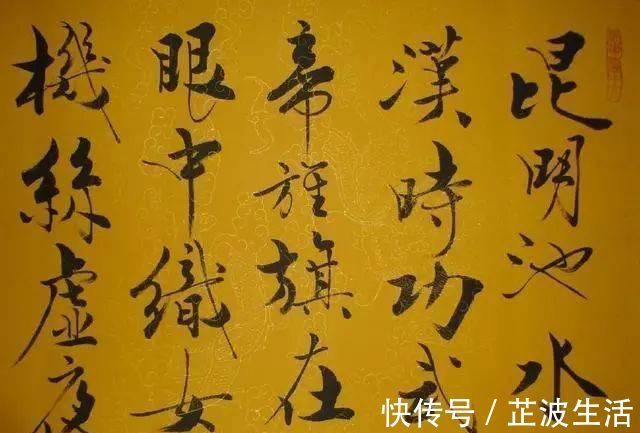 昆明池水
漢時功武
帝旌旗在
眼中織女
機絲虛夜
快传号 / 芷波生活